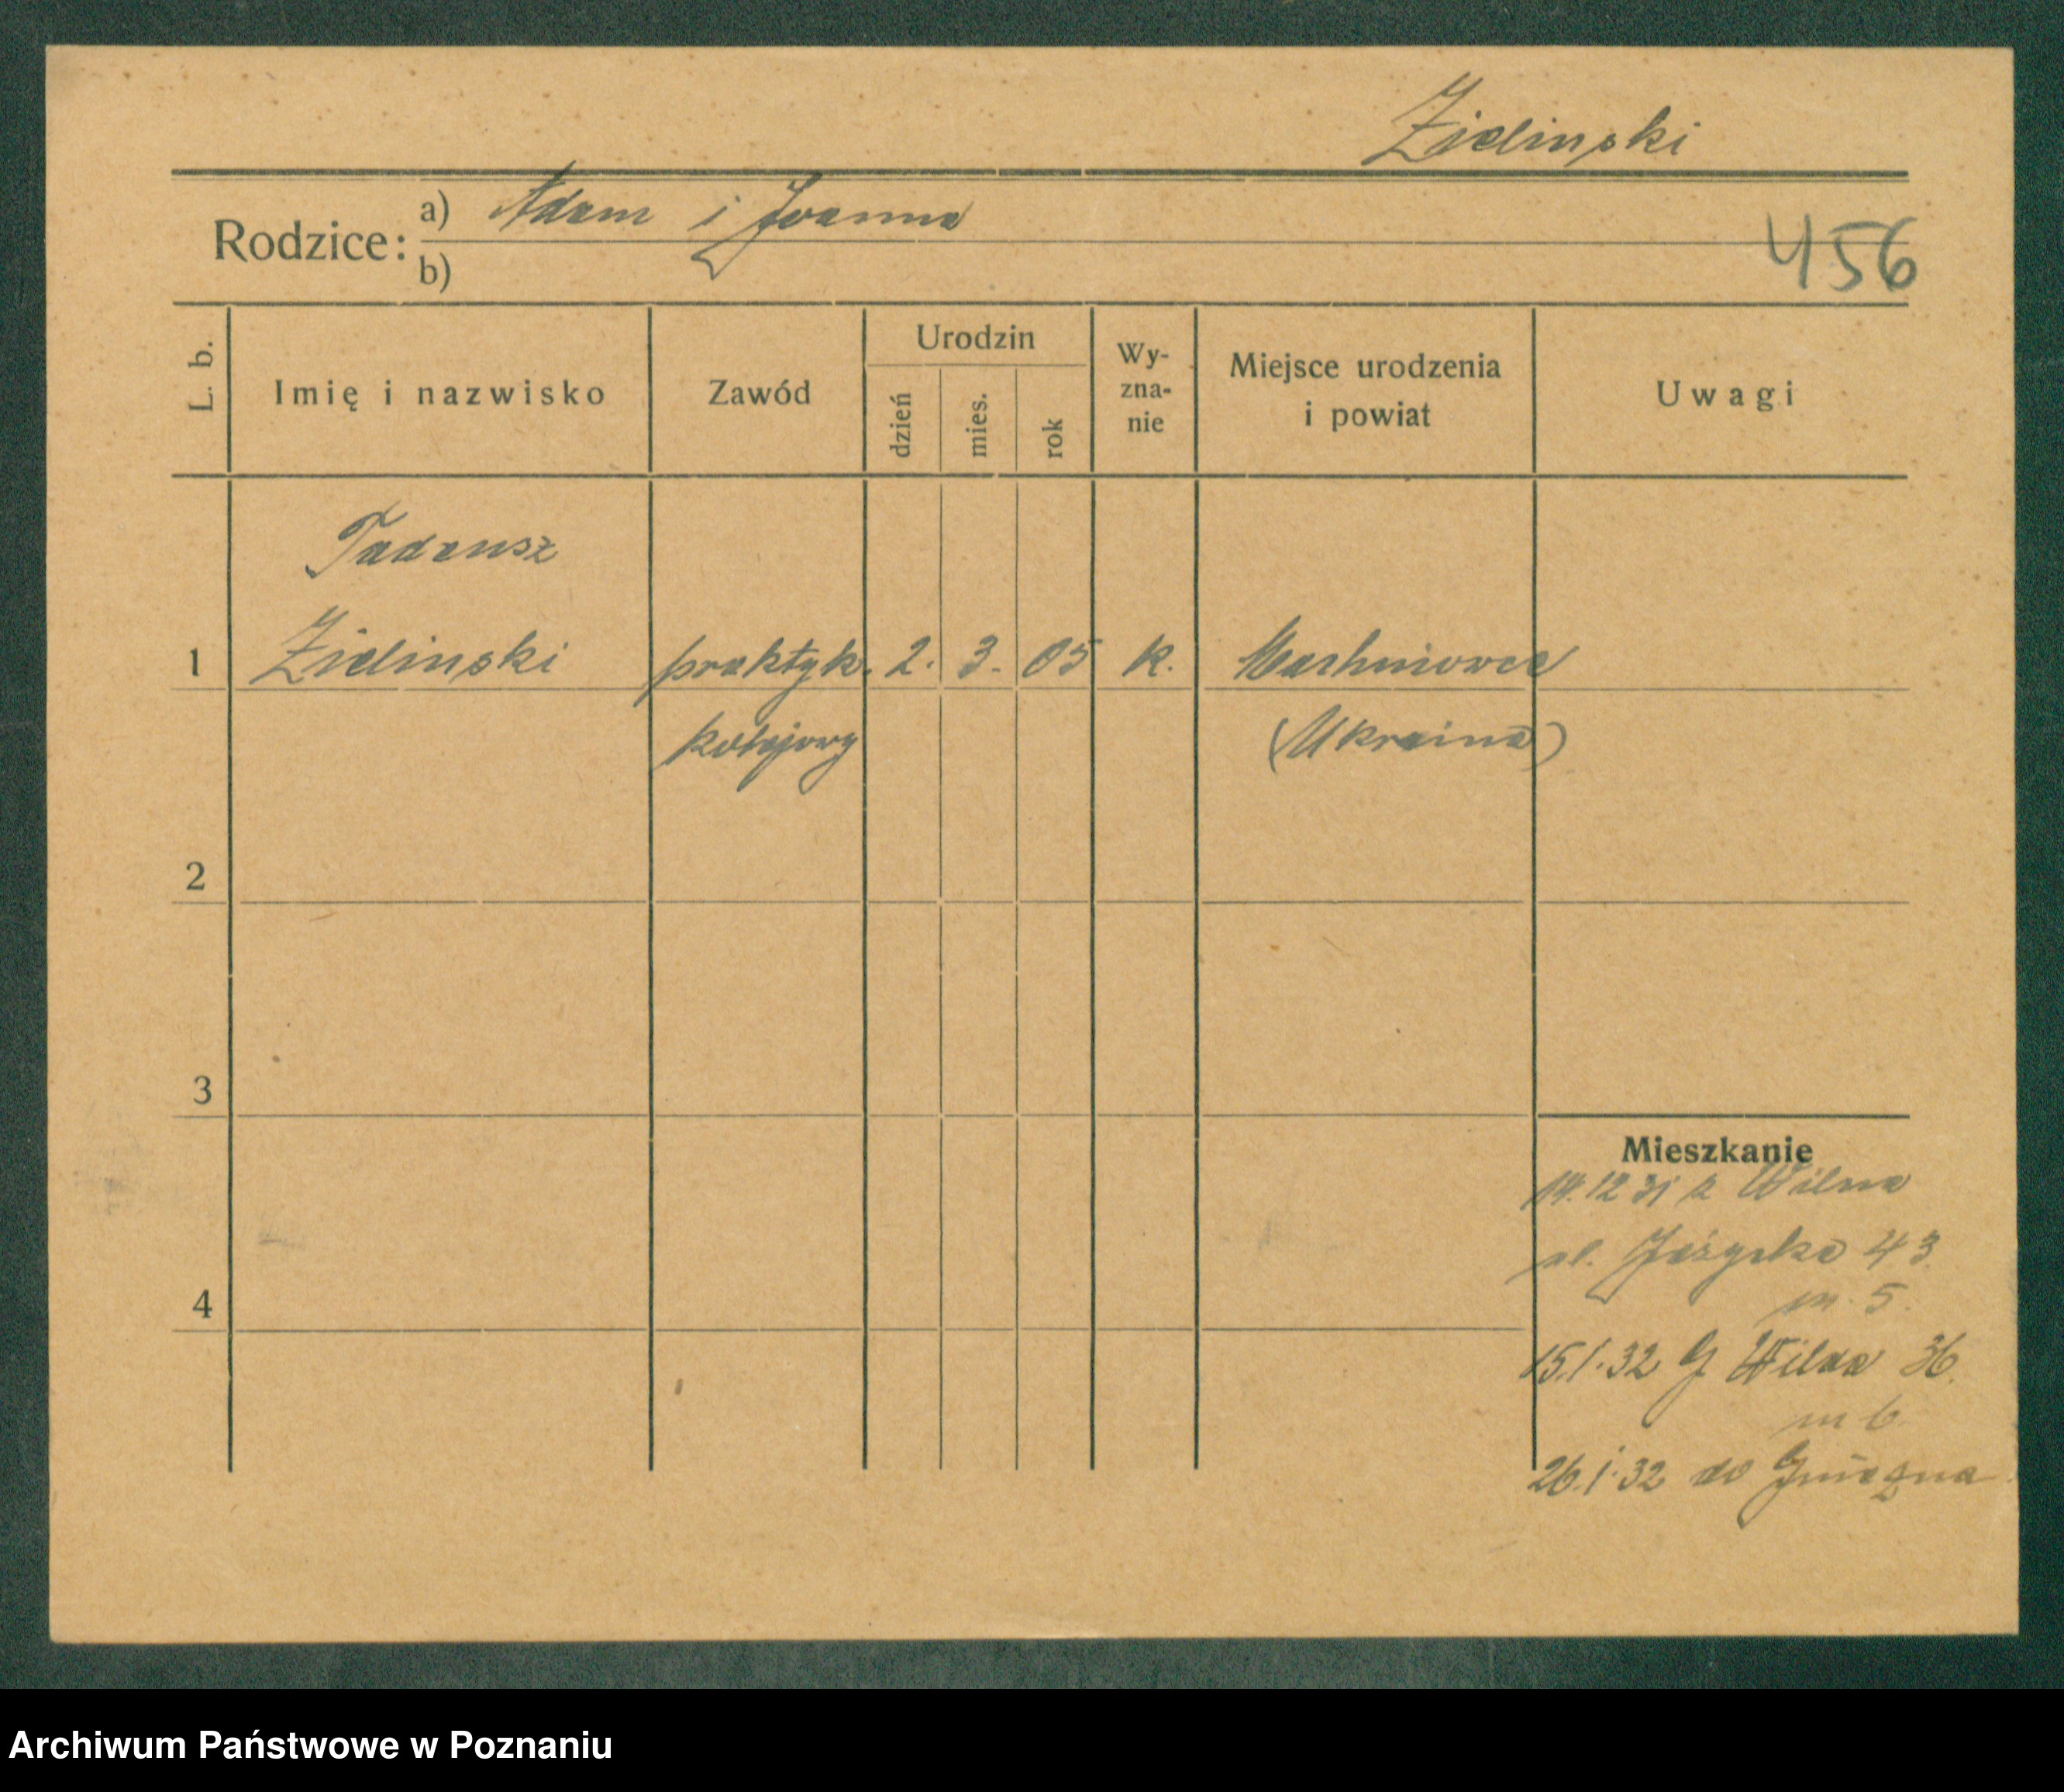 Zielinski
Rodzice: a) Adam i Joanna
b)
456
L. b.
Imię i nazwisko
Zawód
Urodzin
dzień
mies.
rok
Wy-
zna-
nie
Miejsce urodzenia
i powiat
Uwagi
Tadeusz
1 Zielinski praktyk. 2. 3. 05 k. Machniowce
kolejowy (Ukraina)
2
3
4
Mieszkanie
14.12 31 z Wilna
ul. Jeżycka 43
m. 5.
15.1.32 G Wilda 36.
m 6.
26.1.32 do Gniezna
Archiwum Państwowe w Poznaniu